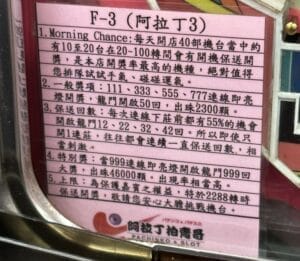 F-3 (阿拉丁3)
1.Morning Chance:每天開店40部機台當中約
有10至20台在20-100轉間會有開機保送開
獎,是本店開獎率最高的機種,絕對值得
您排隊試試手氣、碰碰運氣。
2.一般獎項:111、333、555、777連線即亮
燈開獎,龍門開啟50回,出珠2300顆。
3.保送回數:每次連線下莊前都有55%的機會
開啟龍門12、22、32、42回。所以即使只
開1連莊,往往都會連續一直保送回數,相
當刺激。
4.特別獎:當999連線即亮燈開啟龍門999回
大獎,出珠46000顆,出現率相當高。
5.上限:為保護嘉賓之權益,特於2288轉時
保送開獎,敬請您安心大膽挑戰機台。
パチンコ&パチスロ
阿拉丁柏青哥
PACHINKO & SLOT